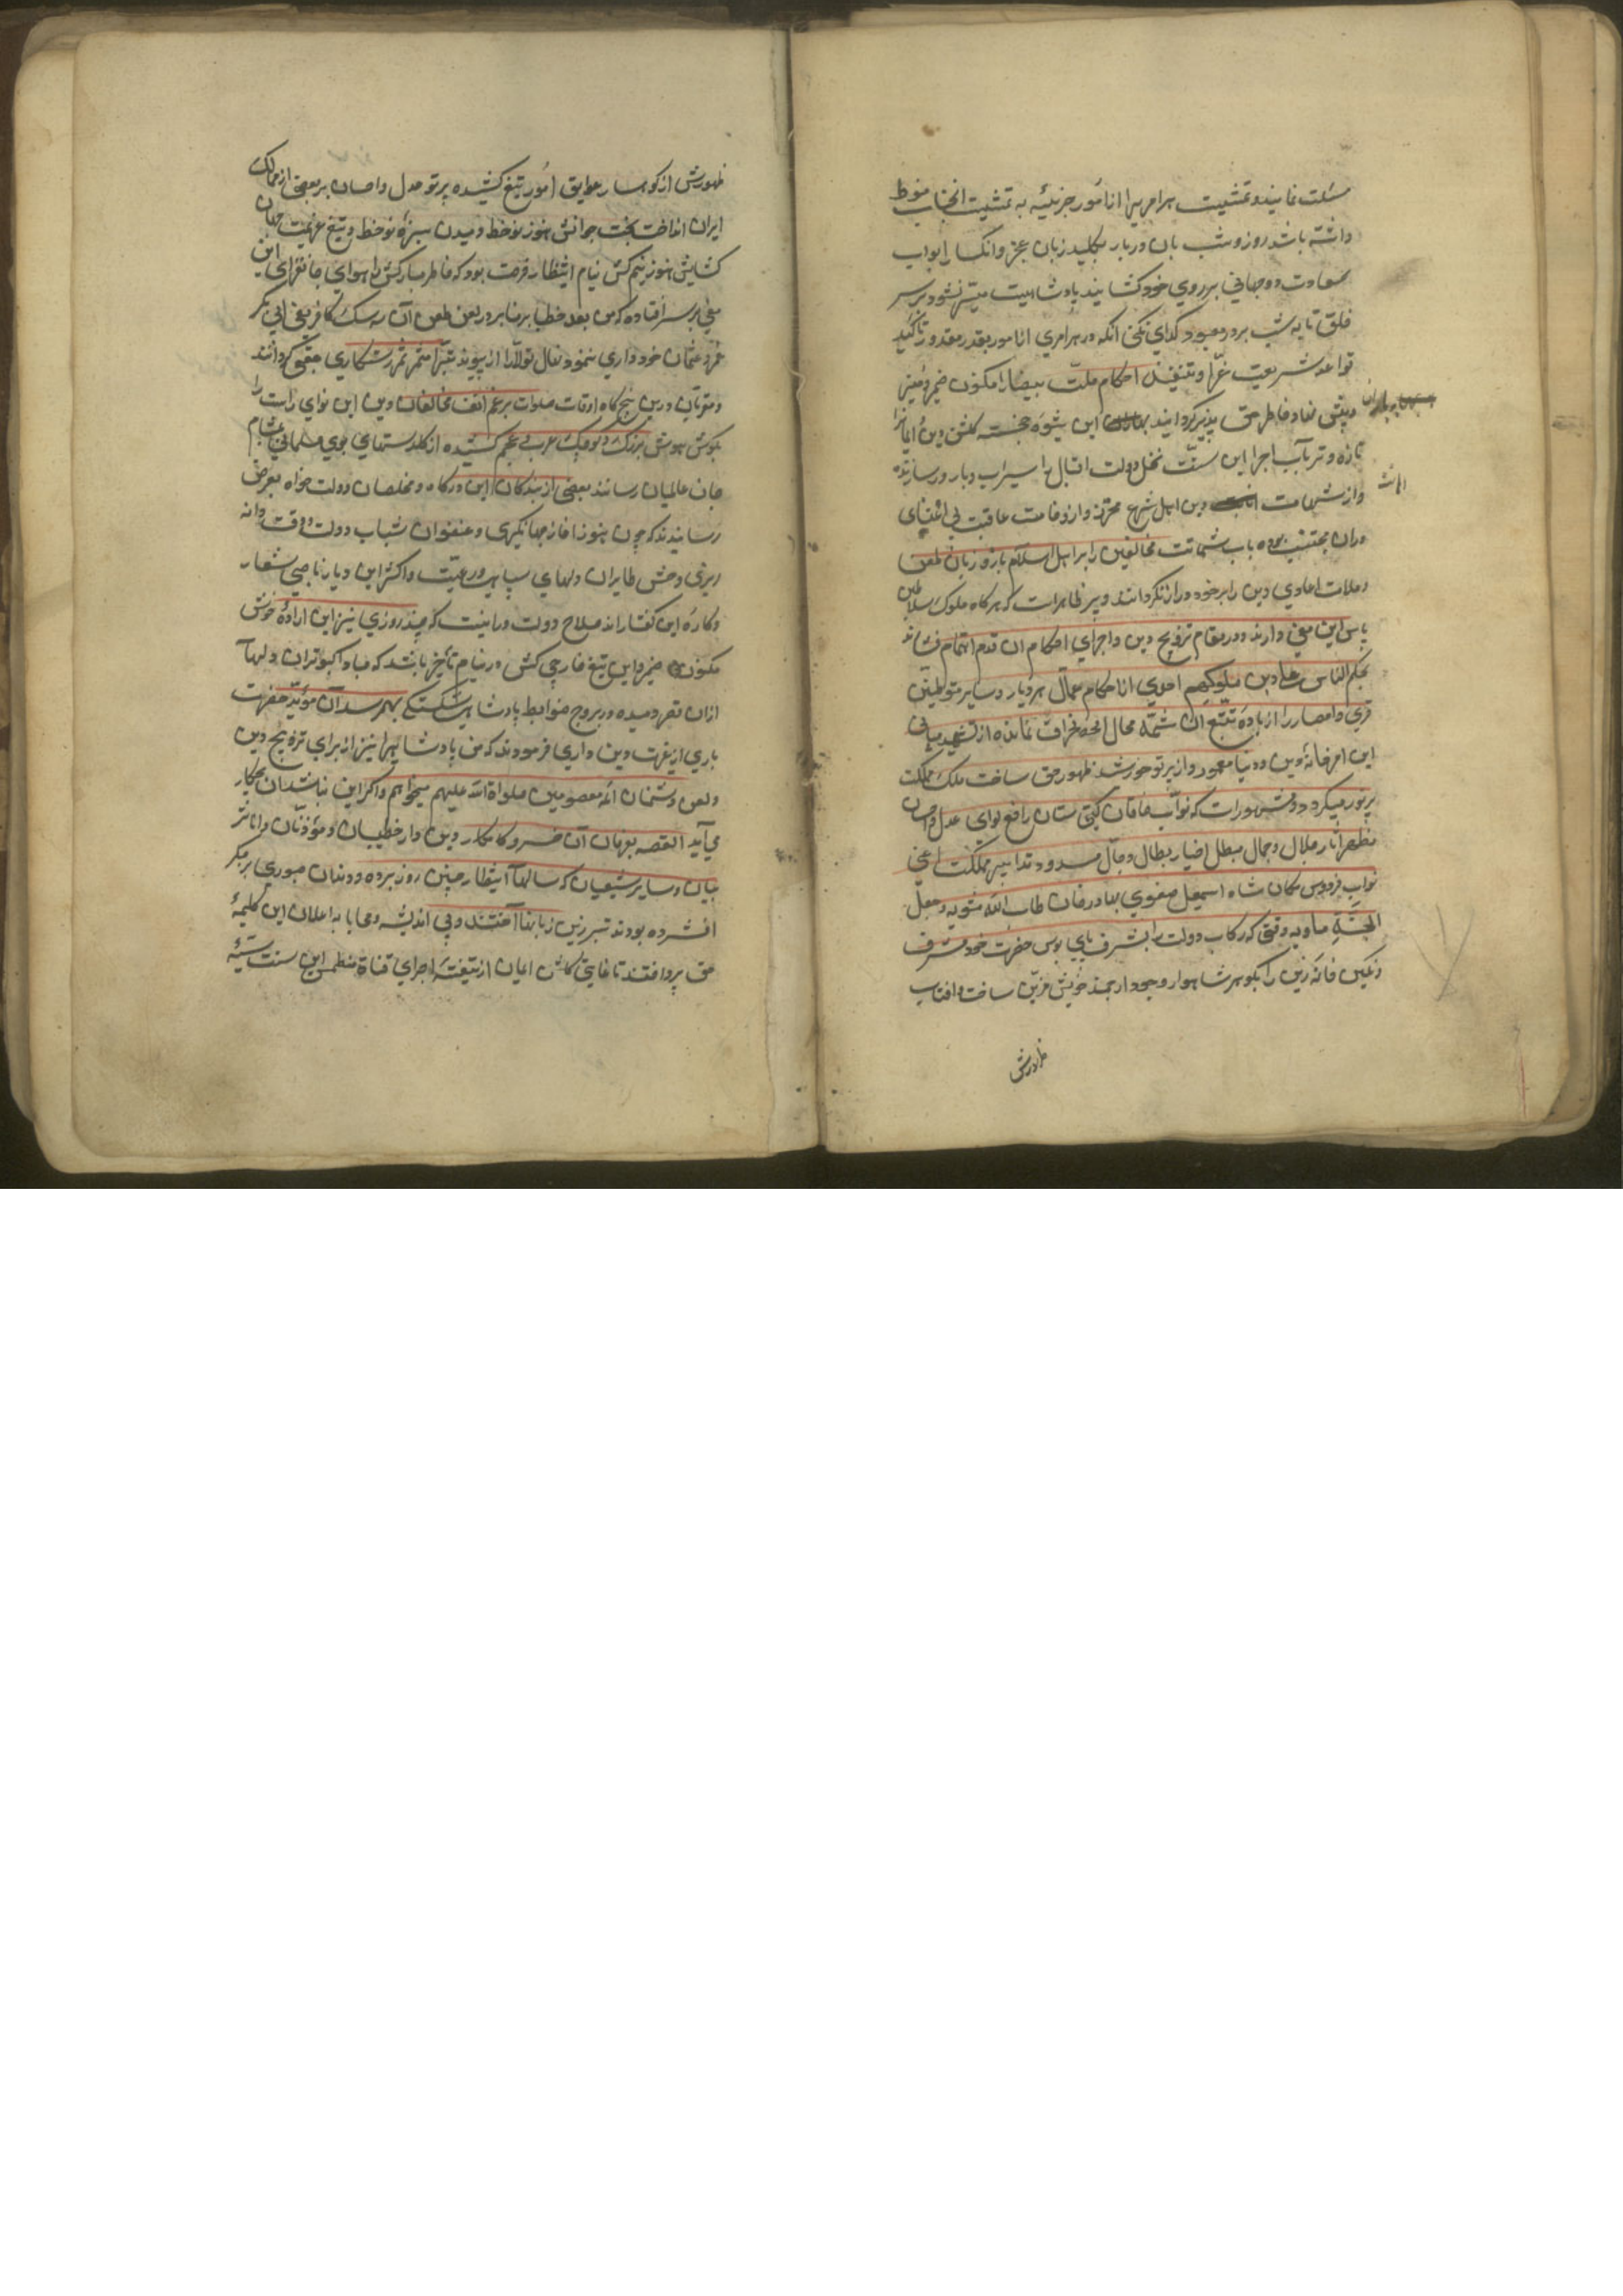 مسئلت نمایند و تمشیت هر امریرا از امور جزئیه به تمشیت انجناب منوط
داشته باشد روز و شب بان دربار بکلید زبان عجز و انکسار ابواب
سعادت دو جهانی بر روی خود کشایند پادشاهیت میسر نشود بر سر
خلق تا به شب بر در معبود گدای نکنی انکه در هر امری از امور بقدر مقدور تاکید
قواعد شریعت غرّا و تنفیذ احکام ملّت بیضا را مکنون ضمیر
و خاطر حق پذیر گردانند این شیوه خجسته گلشن دین ایمانرا
تازه و تر بآب اجرا این سنّت نخل دولت اقبال را سیراب و بارور سازند
و از شماتت دین اهل شرع محترز و از وخامت عاقبت بی اعتنای
دران مجتنب بوده باب شماتت مخالفین را بر اهل اسلام باز و زبان طعن
و ملامت اعادی دین را بر خود دراز نگردانند و پر ظاهرات که هرگاه ملوک و سلاطین
پاس این معنی دارند و در مقام ترویج دین و اجرای احکام ان قدم اهتمام فشارند
بحکم الناس علی دین ملوکهم احدی از حکام عمّال هر دیار و سایر متوطنین
قری و امصار را از جاده تتبّع ان شمّه محال انحراف نمانده از تشیید مبانی
این امر خانه دین و دنیا معمور و از پرتو خورشید ظهور حق ساخت ملک مملکت
پرنور میگردد و مشهورات که نوّاب خاقان گیتی ستان رافع لوای عدل و احسان
مظهر اثار جلال و جمال مبطل اخیار بطال و جال مسدود تدابیر مملکت اعنی
نواب فردوس مکان شاه اسمعیل صفوی بهادر خان طاب الله مثویه و جعل
الجنّة ماویه وقتی که رکاب دولت را بشرف پای بوس حضرت خود مشرف
و نگین خانه زین را بگوهر شاهوار وجود ارجمند خویش مزیّن ساخت و افتاب
ظهورش
ظهورش از کوهسار عوایق امور تیغ کشیده پرتو عدل و احسان بر بعضی از ممالک
ایران انداخت بخت جوانش هنوز نوخط دمیدن سبزه نوخط و تیغ عزیمت جهان
کشایش هنوز نیم کش نیام انتظار فرصت بود که خاطر مبارکش را هوای جانفزای این
معنی بر سر افتاده که من بعد خطبا بر منابر در لعن و طعن آن سه سک کافر یعنی ابی بکر
عمر و عثمان خود داری ننمود نهال تولّا را از پیوند تبرّا مثمر ثمر رستگاری حقیقی گردانند
و موذنان درین پنج گاه اوقات صلوات برغم انف مخالفان دین این نوای راست را
بگوش هوش بزرگ و کوچک عرب و عجم کشیده از گلدستهای بوی مسلمانی بمشام
جان عالمیان رسانند بعضی از بندگان این درگاه و مخلصان دولت خواه بعرض
رسانیدند که چون هنوز اغاز جهانگیری و عنفوان شباب دولت و وقت دانه
ریزی وحش طایران دلهای سپاهی و رعیّت و اکثر این دیار ناصبی شعار
و کاره این گفتارند صلاح دولت درانیست که چند روزی نیز این اراده خوش
مکنون ضمیر و این تیغ خارجی کش در نیام تأخیر باشد که مبادا کبوتران دلها
ازان نفر رمیده در بروج ضوابط پادشاهی شکستگی بهم رسد آن مویّد حضرت
باری از غیرت دین داری فرمودند که من پادشاهی را نیز از برای ترویج دین
و لعن دشمنان ائمه معصومین صلواة الله علیهم میخواهم و اگر این نباشد ان بچکار
می آید القصه بفرمان آن خسرو کامکار دین دار خطیبان و موذنان و امامت
بیان و سایر شیعیان که سالها انتظار چنین روز برده و دندان صبوری بر جگر
افشرده بودند تبرزین زبانها آختند و بی اندیشه و محابا به اعلان این کلمهٔ
حق پرداختند تا غایتی که گلشن ایمان از تیغشه اجرای قناة منطمس این سنت سنیّه